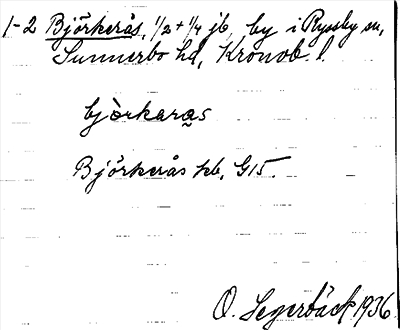 1-2 Björkerås, 1/2 + 1/4 jb, by i Ryssby sn,
Sunnerbo hd, Kronob. l.
bjòrkaras
Björkerås kb, G15.
O. Segerbäck 1936